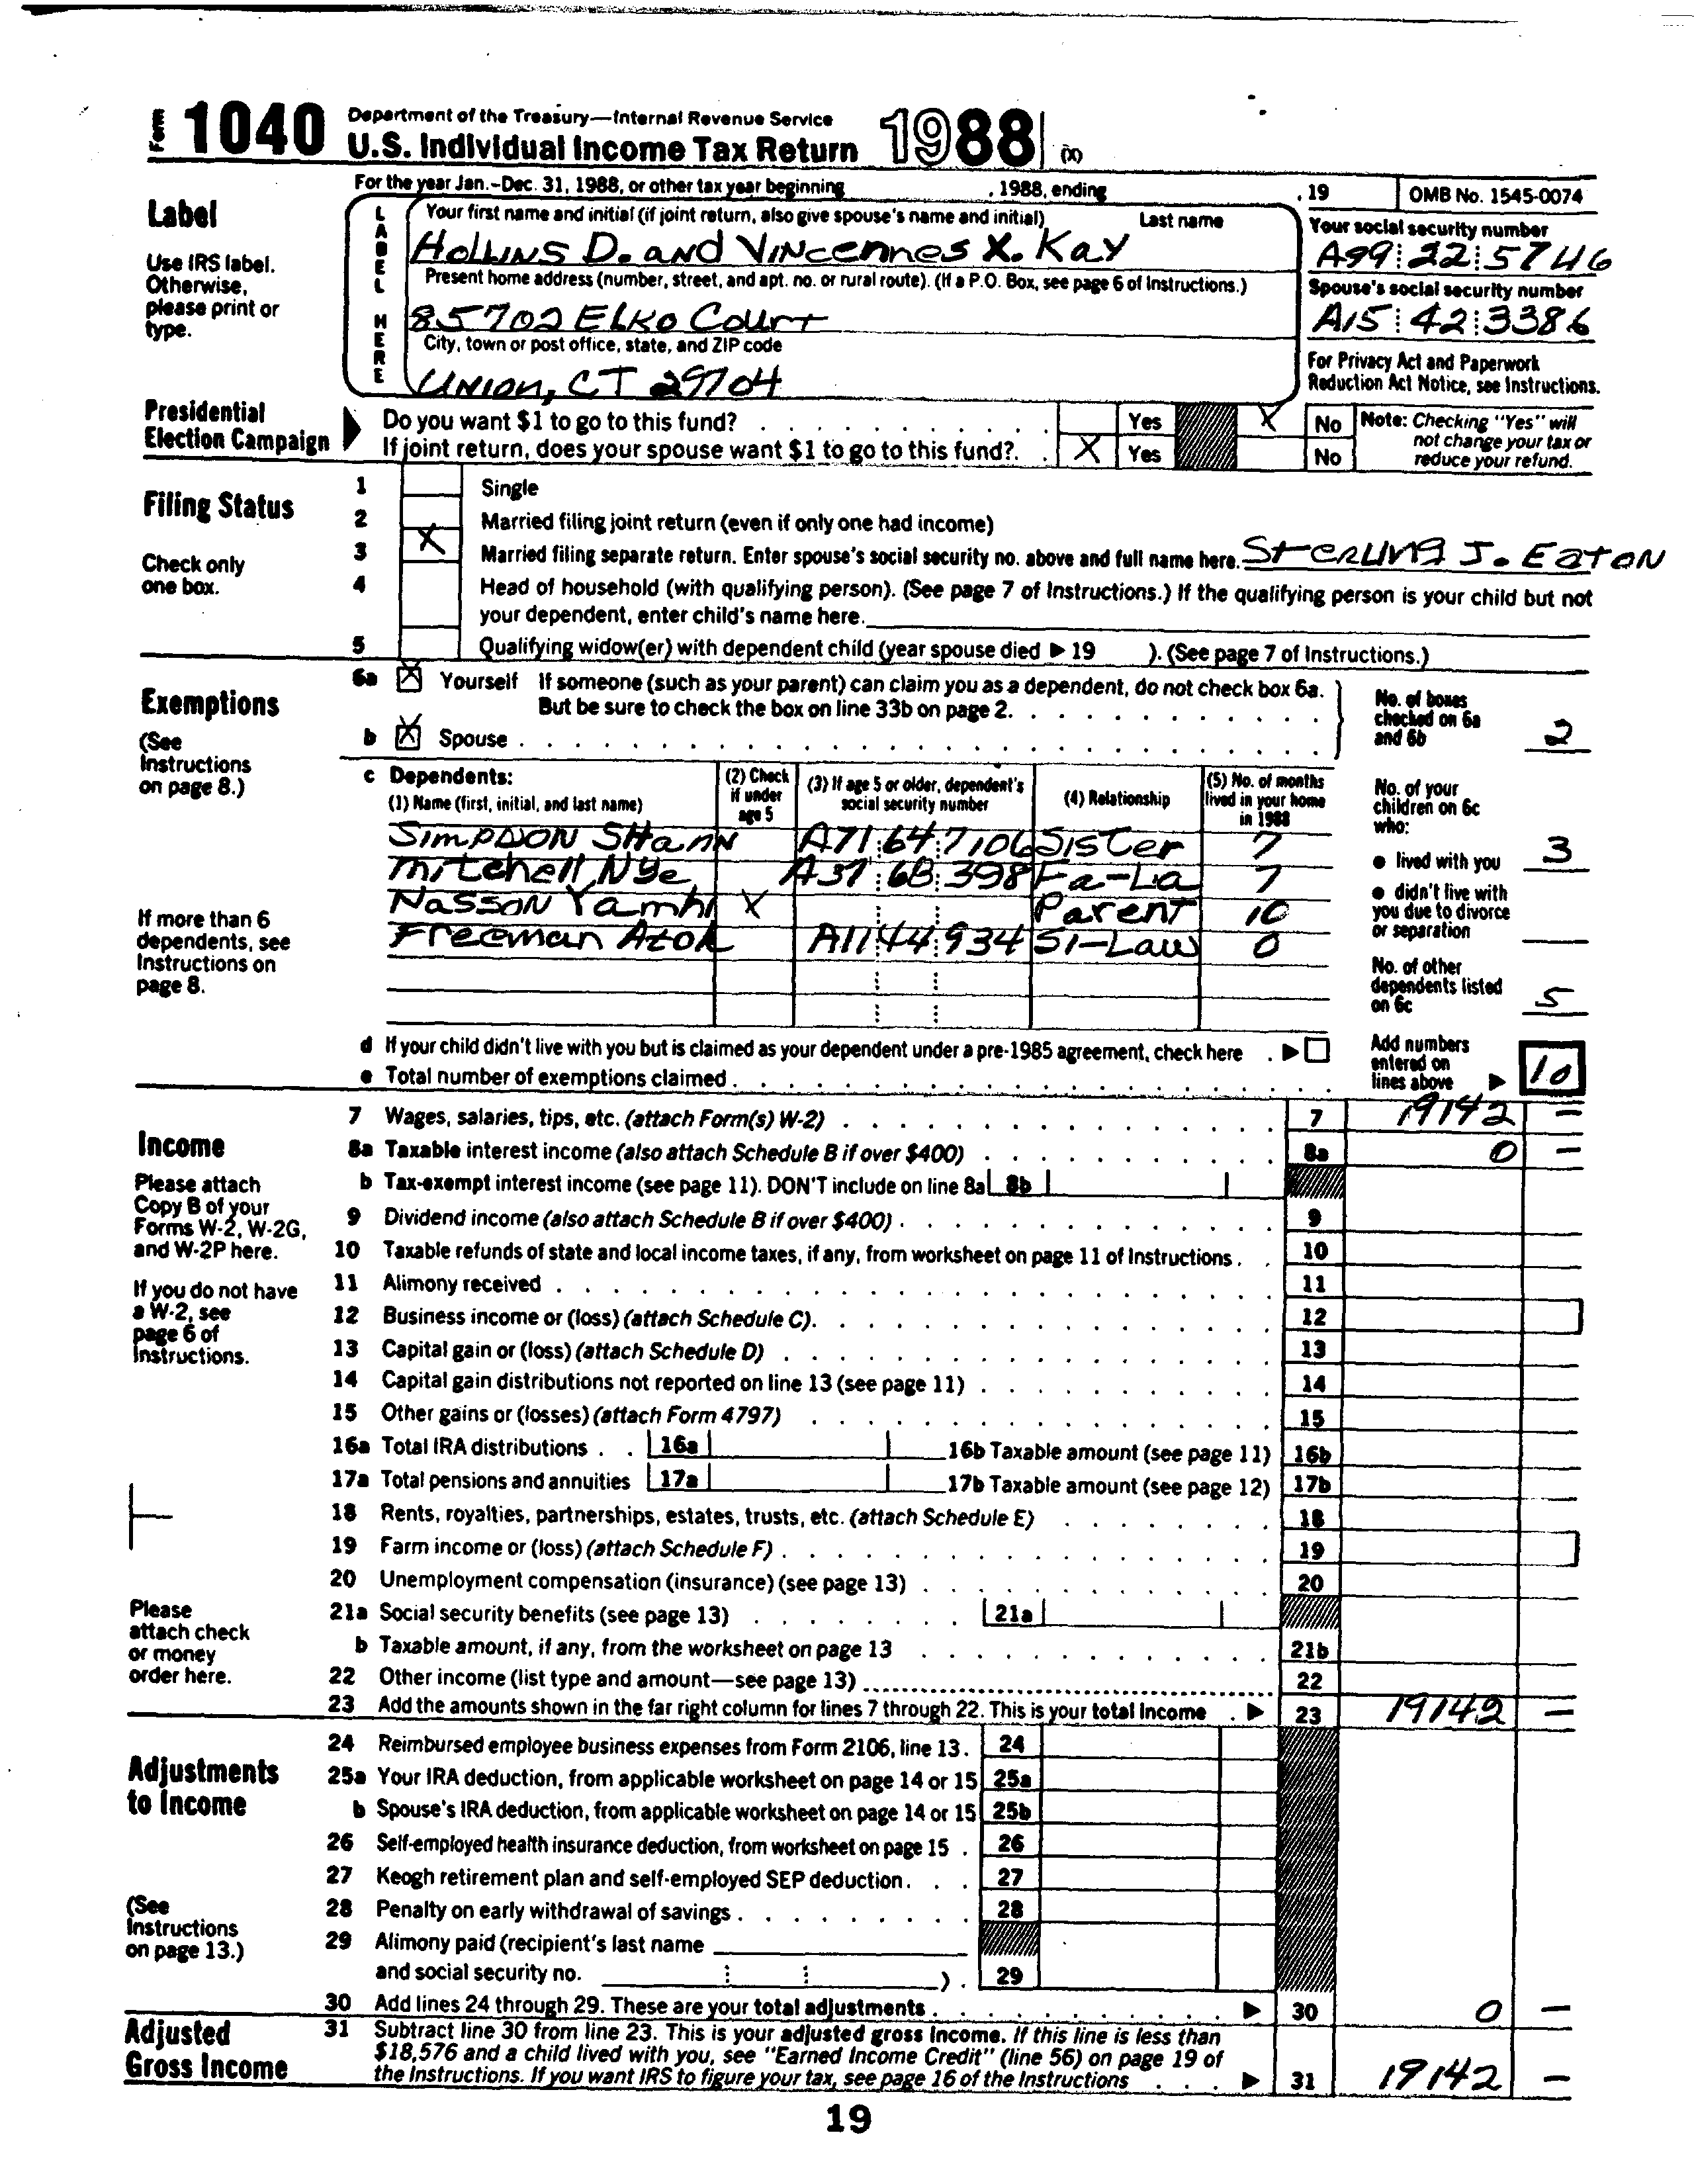 Form 1040 Department of the Treasury—Internal Revenue Service
U.S. Individual Income Tax Return 1988 (X)
For the year Jan.-Dec. 31, 1988, or other tax year beginning , 1988, ending , 19 OMB No. 1545-0074
Label
Use IRS label. Otherwise, please print or type.
LABEL HERE
Your first name and initial (if joint return, also give spouse's name and initial) Last name
HOLLINS D. AND VINCENNES X. KAY
Your social security number
A99 22 5746
Present home address (number, street, and apt. no. or rural route). (If a P.O. Box, see page 6 of Instructions.)
85702 ELKO COURT
Spouse's social security number
A15 42 3386
City, town or post office, state, and ZIP code
UNION, CT 29704
For Privacy Act and Paperwork Reduction Act Notice, see Instructions.
Presidential Election Campaign
Do you want $1 to go to this fund? Yes X No
If joint return, does your spouse want $1 to go to this fund? X Yes No
Note: Checking "Yes" will not change your tax or reduce your refund.
Filing Status
Check only one box.
1 Single
2 Married filing joint return (even if only one had income)
3 X Married filing separate return. Enter spouse's social security no. above and full name here. STERLING J. EATON
4 Head of household (with qualifying person). (See page 7 of Instructions.) If the qualifying person is your child but not
your dependent, enter child's name here.
5 Qualifying widow(er) with dependent child (year spouse died ▶ 19 ). (See page 7 of Instructions.)
Exemptions
(See Instructions on page 8.)
6a X Yourself If someone (such as your parent) can claim you as a dependent, do not check box 6a.
But be sure to check the box on line 33b on page 2.
b X Spouse
No. of boxes checked on 6a and 6b 2
c Dependents:
(1) Name (first, initial, and last name) (2) Check if under age 5 (3) If age 5 or older, dependent's social security number (4) Relationship (5) No. of months lived in your home in 1988
SIMPSON SHANN A71 64 7106 SISTER 7
MITCHELL NYE A37 68 398 Fa-La 7
NASSON YAMHI X PARENT 10
FREEMAN AZOK A11 44 934 SI-LAW 0
If more than 6 dependents, see Instructions on page 8.
No. of your children on 6c who:
● lived with you 3
● didn't live with you due to divorce or separation
No. of other dependents listed on 6c 5
d If your child didn't live with you but is claimed as your dependent under a pre-1985 agreement, check here ▶
e Total number of exemptions claimed
Add numbers entered on lines above ▶ 10
Income
Please attach Copy B of your Forms W-2, W-2G, and W-2P here.
If you do not have a W-2, see page 6 of Instructions.
Please attach check or money order here.
7 Wages, salaries, tips, etc. (attach Form(s) W-2) 7 19142 —
8a Taxable interest income (also attach Schedule B if over $400) 8a 0 —
b Tax-exempt interest income (see page 11). DON'T include on line 8a 8b
9 Dividend income (also attach Schedule B if over $400) 9
10 Taxable refunds of state and local income taxes, if any, from worksheet on page 11 of Instructions 10
11 Alimony received 11
12 Business income or (loss) (attach Schedule C) 12
13 Capital gain or (loss) (attach Schedule D) 13
14 Capital gain distributions not reported on line 13 (see page 11) 14
15 Other gains or (losses) (attach Form 4797) 15
16a Total IRA distributions 16a 16b Taxable amount (see page 11) 16b
17a Total pensions and annuities 17a 17b Taxable amount (see page 12) 17b
18 Rents, royalties, partnerships, estates, trusts, etc. (attach Schedule E) 18
19 Farm income or (loss) (attach Schedule F) 19
20 Unemployment compensation (insurance) (see page 13) 20
21a Social security benefits (see page 13) 21a
b Taxable amount, if any, from the worksheet on page 13 21b
22 Other income (list type and amount—see page 13) 22
23 Add the amounts shown in the far right column for lines 7 through 22. This is your total income ▶ 23 19142 —
Adjustments to Income
(See Instructions on page 13.)
24 Reimbursed employee business expenses from Form 2106, line 13. 24
25a Your IRA deduction, from applicable worksheet on page 14 or 15 25a
b Spouse's IRA deduction, from applicable worksheet on page 14 or 15 25b
26 Self-employed health insurance deduction, from worksheet on page 15 26
27 Keogh retirement plan and self-employed SEP deduction 27
28 Penalty on early withdrawal of savings 28
29 Alimony paid (recipient's last name
and social security no. ) 29
30 Add lines 24 through 29. These are your total adjustments ▶ 30 0 —
Adjusted Gross Income
31 Subtract line 30 from line 23. This is your adjusted gross income. If this line is less than
$18,576 and a child lived with you, see "Earned Income Credit" (line 56) on page 19 of
the Instructions. If you want IRS to figure your tax, see page 16 of the Instructions ▶ 31 19142 —
19